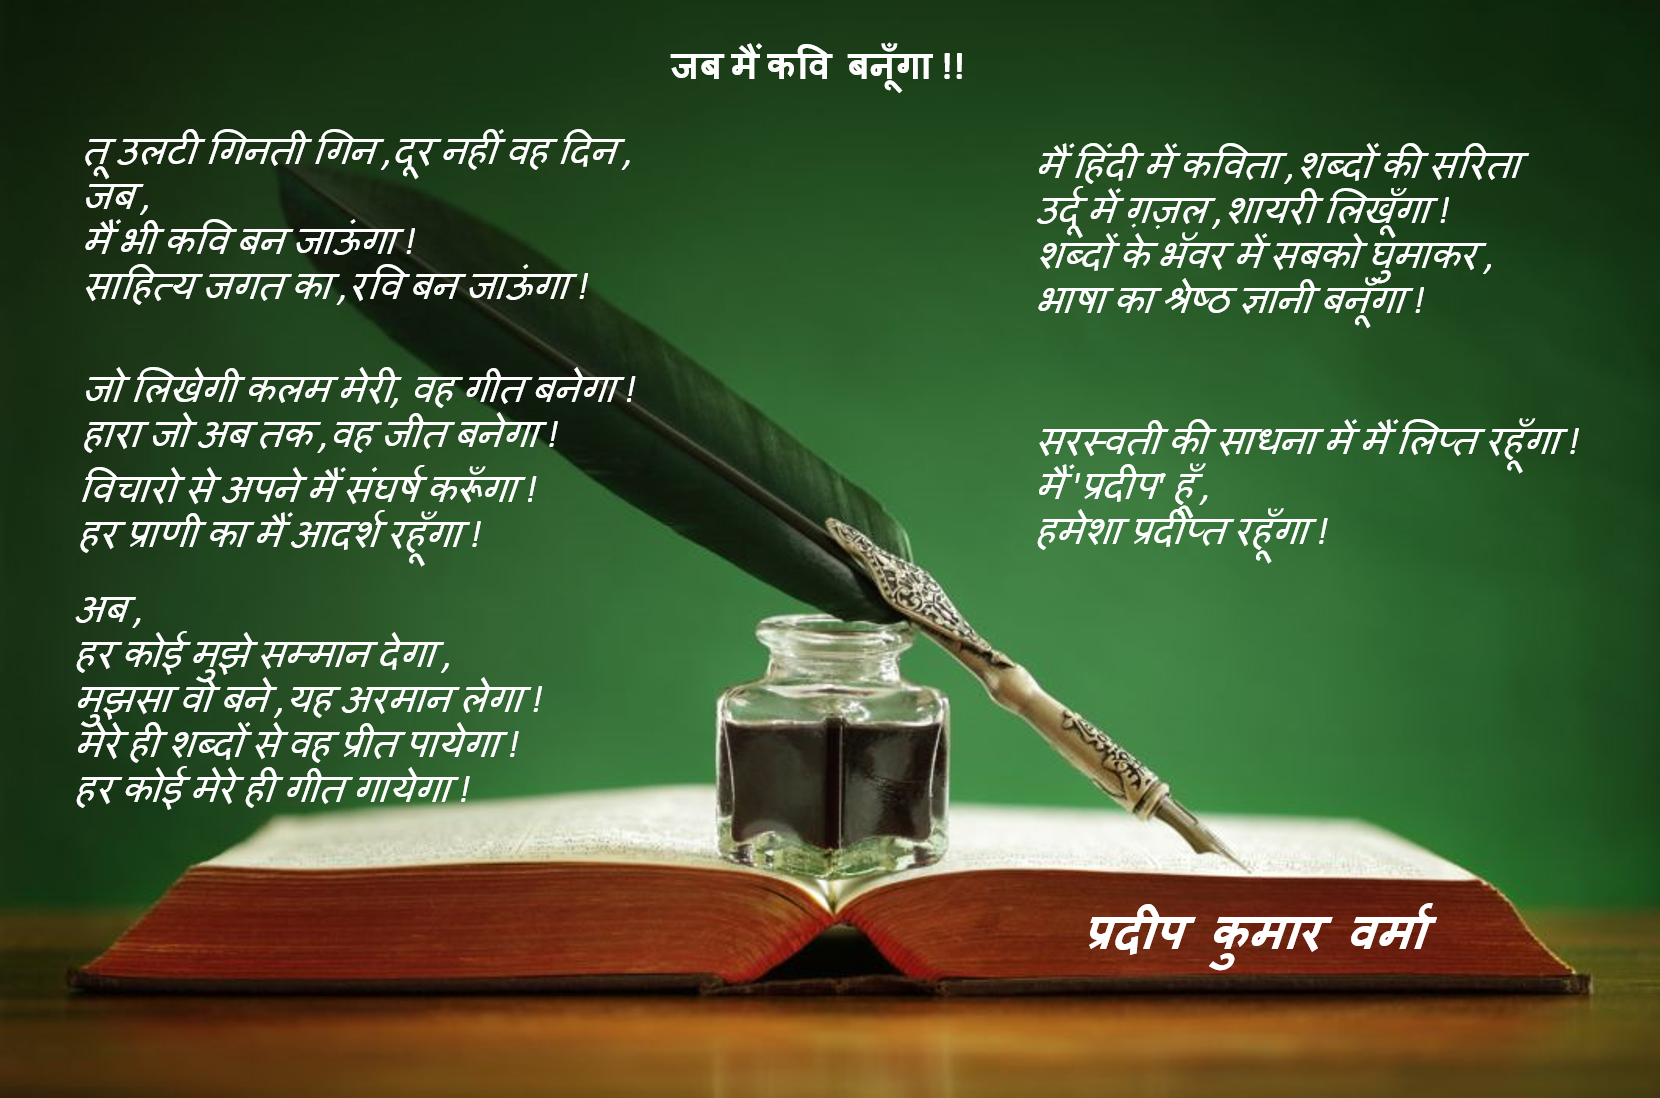 जब मैं कवि बनूँगा !!
तू उलटी गिनती गिन ,दूर नहीं वह दिन ,
जब ,
मैं भी कवि बन जाऊंगा !
साहित्य जगत का ,रवि बन जाऊंगा !
जो लिखेगी कलम मेरी, वह गीत बनेगा !
हारा जो अब तक ,वह जीत बनेगा !
विचारो से अपने मैं संघर्ष करूँगा !
हर प्राणी का मैं आदर्श रहूँगा !
अब ,
हर कोई मुझे सम्मान देगा ,
मुझसा वो बने ,यह अरमान लेगा !
मेरे ही शब्दों से वह प्रीत पायेगा !
हर कोई मेरे ही गीत गायेगा !
मैं हिंदी में कविता ,शब्दों की सरिता
उर्दू में ग़ज़ल ,शायरी लिखूँगा !
शब्दों के भॅवर में सबको घुमाकर ,
भाषा का श्रेष्ठ ज्ञानी बनूँगा !
सरस्वती की साधना में मैं लिप्त रहूँगा !
मैं 'प्रदीप' हूँ ,
हमेशा प्रदीप्त रहूँगा !
प्रदीप कुमार वर्मा